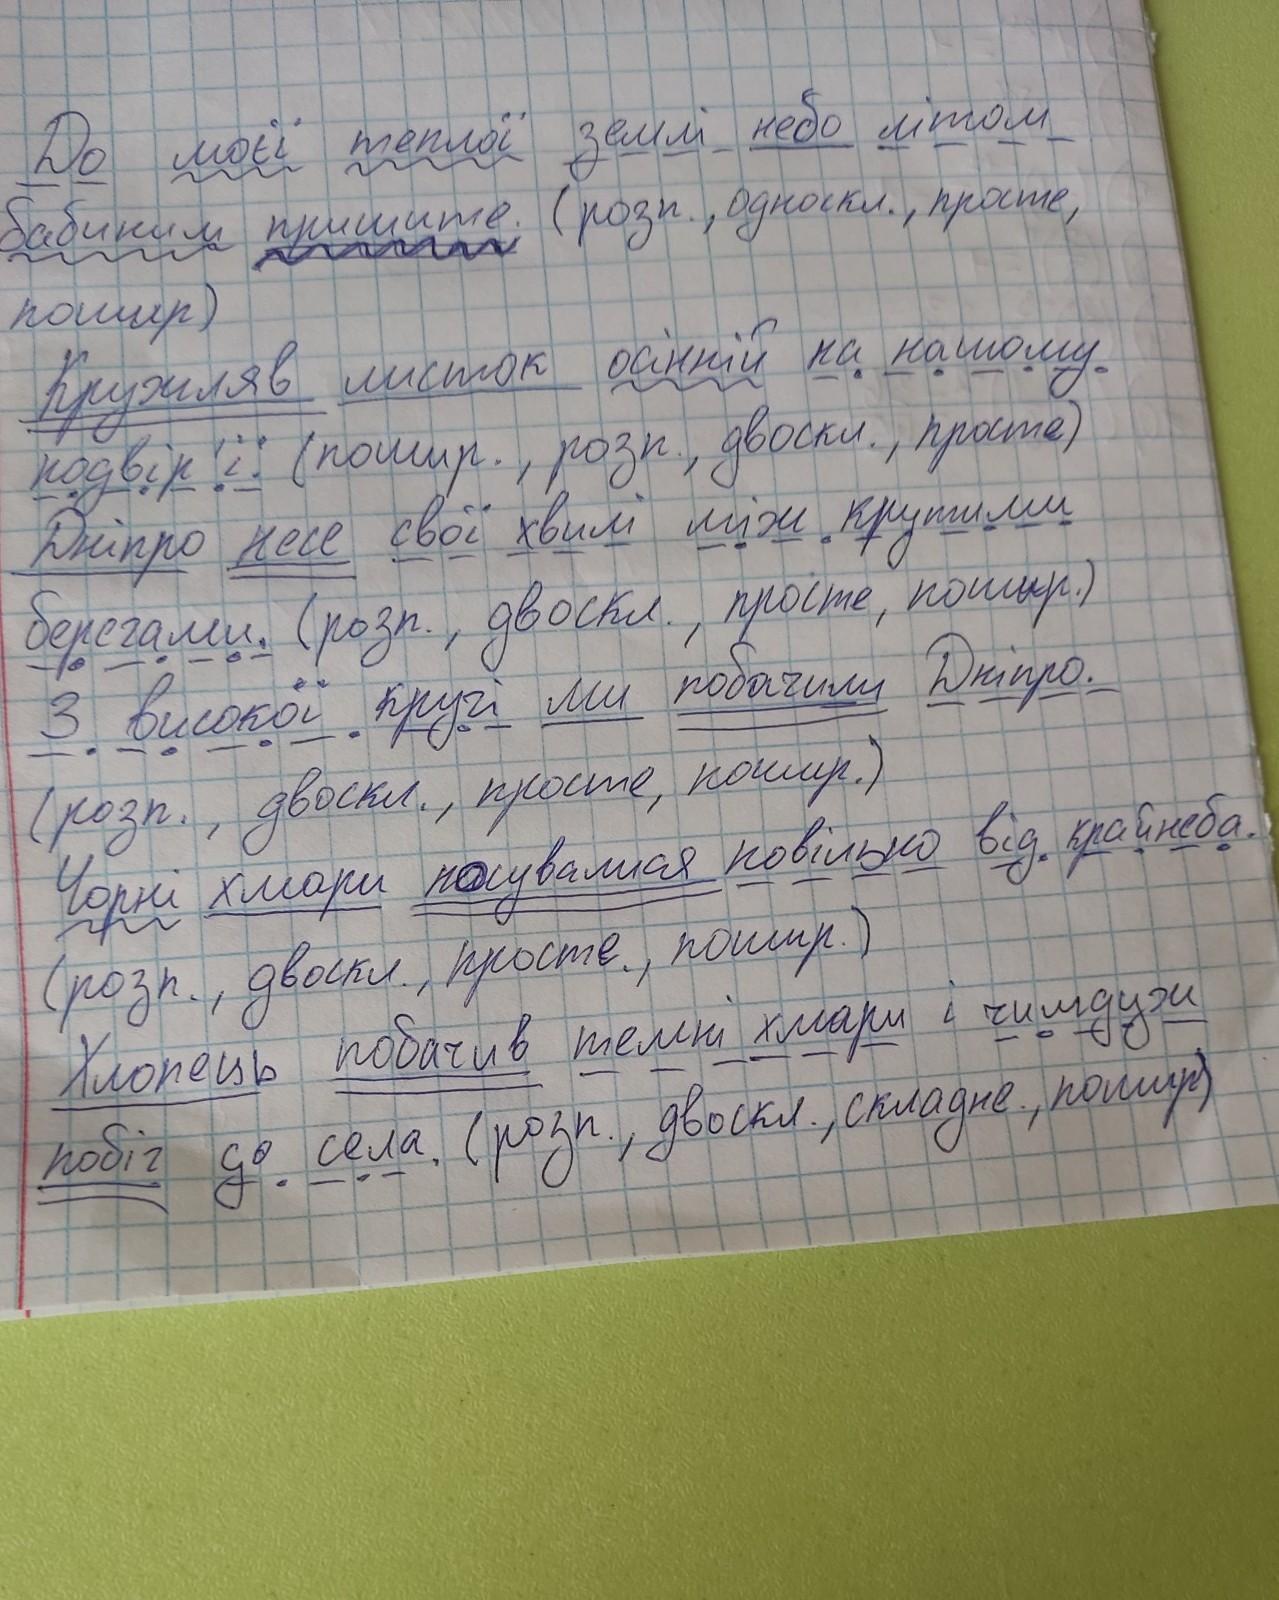 До моєї теплої землі небо літом
бабиним пришите. (розп., односкл., просте,
пошир)
Кружляв листок осінній на нашому
подвір'ї. (пошир., розп., двоскл., просте)
Дніпро несе свої хвилі між крутими
берегами. (розп., двоскл., просте, пошир.)
З високої кручі ми побачили Дніпро.
(розп., двоскл., просте, пошир.)
Чорні хмари посувалися повільно від крайнеба.
(розп., двоскл., просте., пошир.)
Хлопець побачив темні хмари і чимдужи
побіг до села. (розп., двоскл., складне., пошир)